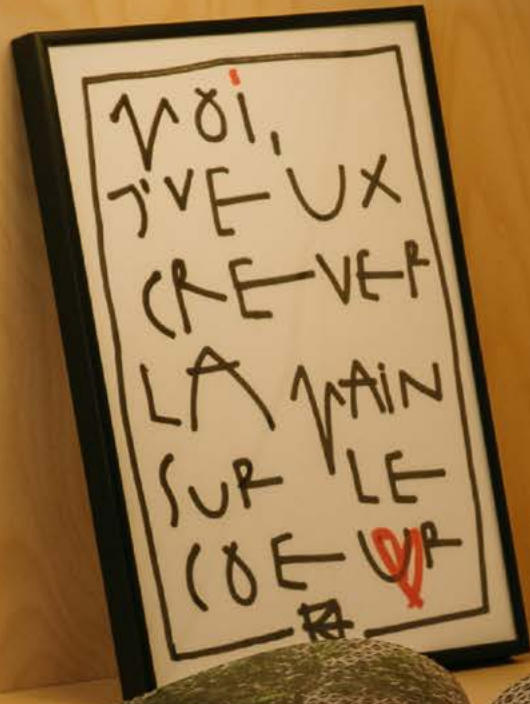 MOI,
J'VEUX
CREVER
LA MAIN
SUR LE
COEUR